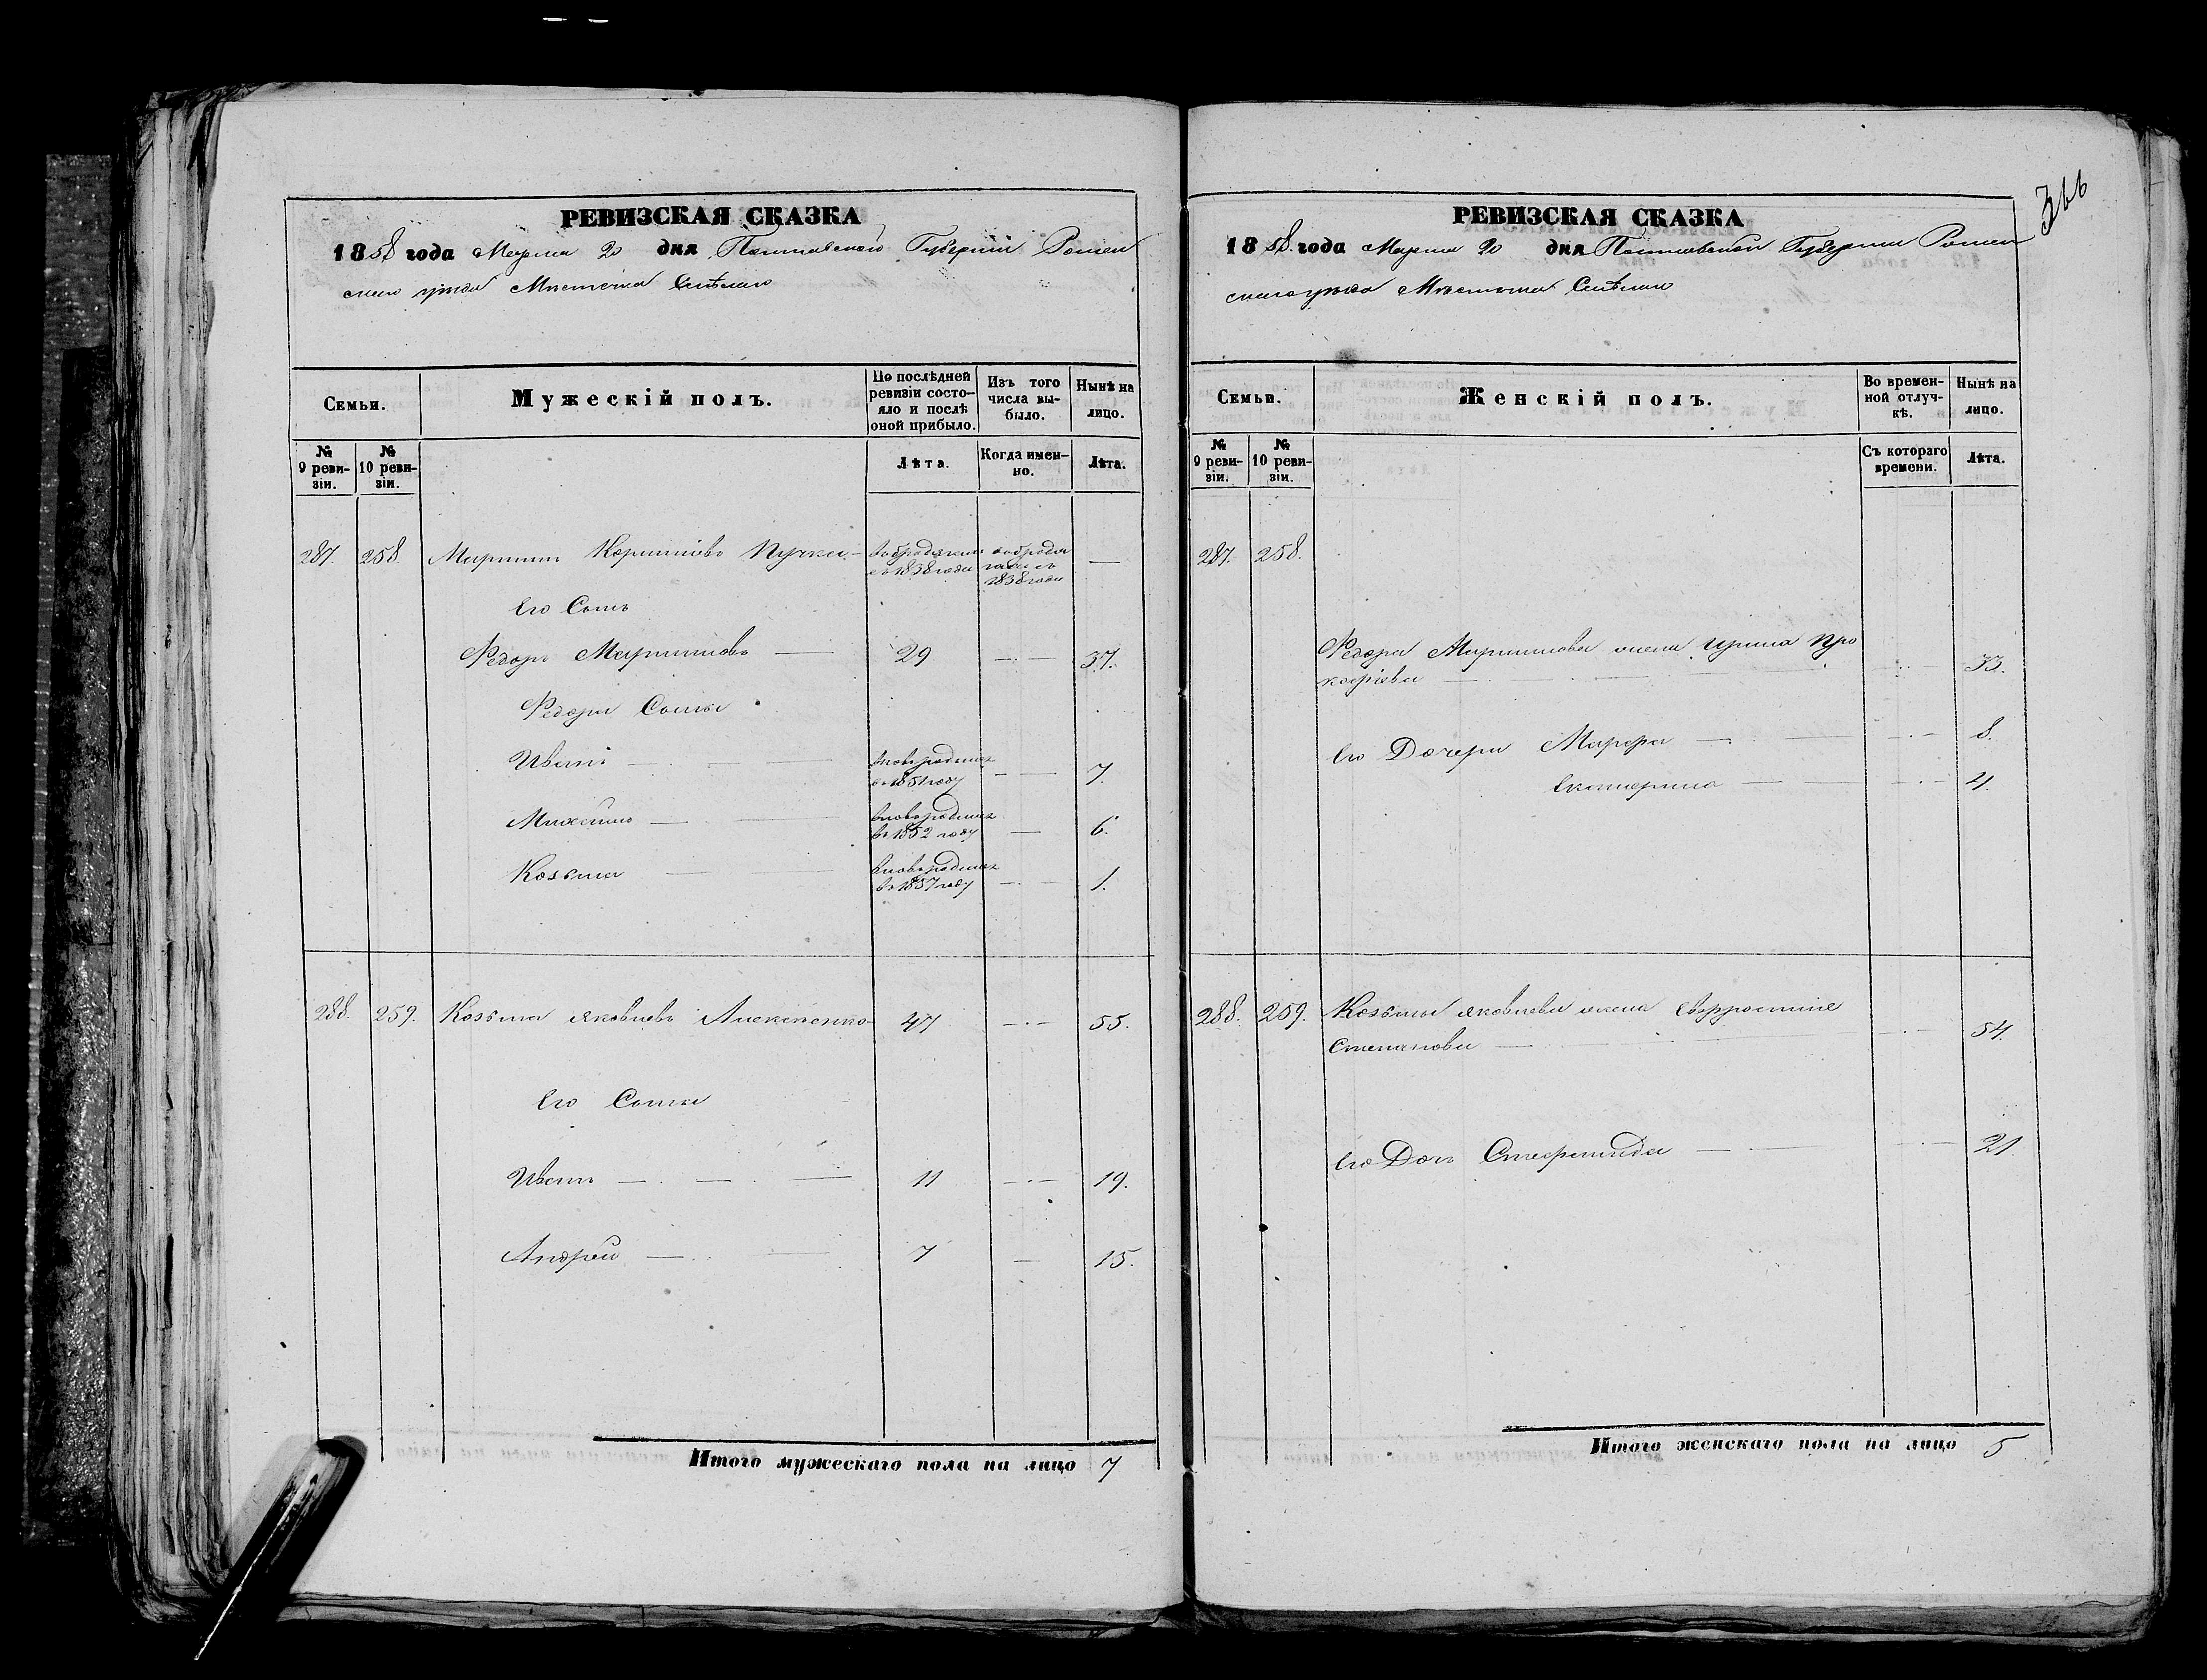 366
РЕВИЗСКАЯ СКАЗКА
1858 года Марта 20 дня Полтавской Губерніи Ромен
скаго уѣзда Мѣстечка Смѣлаго
Семьи.
Мужескій полъ.
По послѣдней ревизіи состо-
яло и послѣ оной прибыло.
Изъ того числа вы-
было.
Нынѣ на лицо.
№ 9 реви-
зіи.
№ 10 реви-
зіи.
Лѣта.
Когда имен-
но.
Лѣта.
287. 258. Мартинъ Корниіовъ Пучка — —
съ 1838 года
съ
1838 года
Его Сынъ
Федоръ Мартиновъ — 29 — 37.
Федора Сыны
Иванъ — вновьрожден
въ 1851 году — 7.
Михайло — вновьрожден
въ 1852 году — 6.
Козьма — вновьрожден
въ 1857 году — 1.
288. 259. Козьма Яковлевъ Алексенко 47 — 55.
Его Сыны
Иванъ — 11 — 19.
Андрей — 7 — 15.
Итого мужескаго пола на лицо 7
РЕВИЗСКАЯ СКАЗКА
1858 года Марта 20 дня Полтавской Губерніи Ромен
скаго уѣзда Мѣстечка Смѣлаго
Семьи.
Женскій полъ.
Во времен-
ной отлуч-
кѣ.
Нынѣ на лицо.
№ 9 реви-
зіи.
№ 10 реви-
зіи.
Съ котораго времени.
Лѣта.
287. 258.
Федора Мартинова жена Ирина Про
кофіева — 33.
Его Дочери Марфа — 8.
Екатерина — 4.
288. 259. Козьмы Яковлева жена Евфросинія
Степанова — 54.
Его Дочь Степанида — 21.
Итого женскаго пола на лицо 5